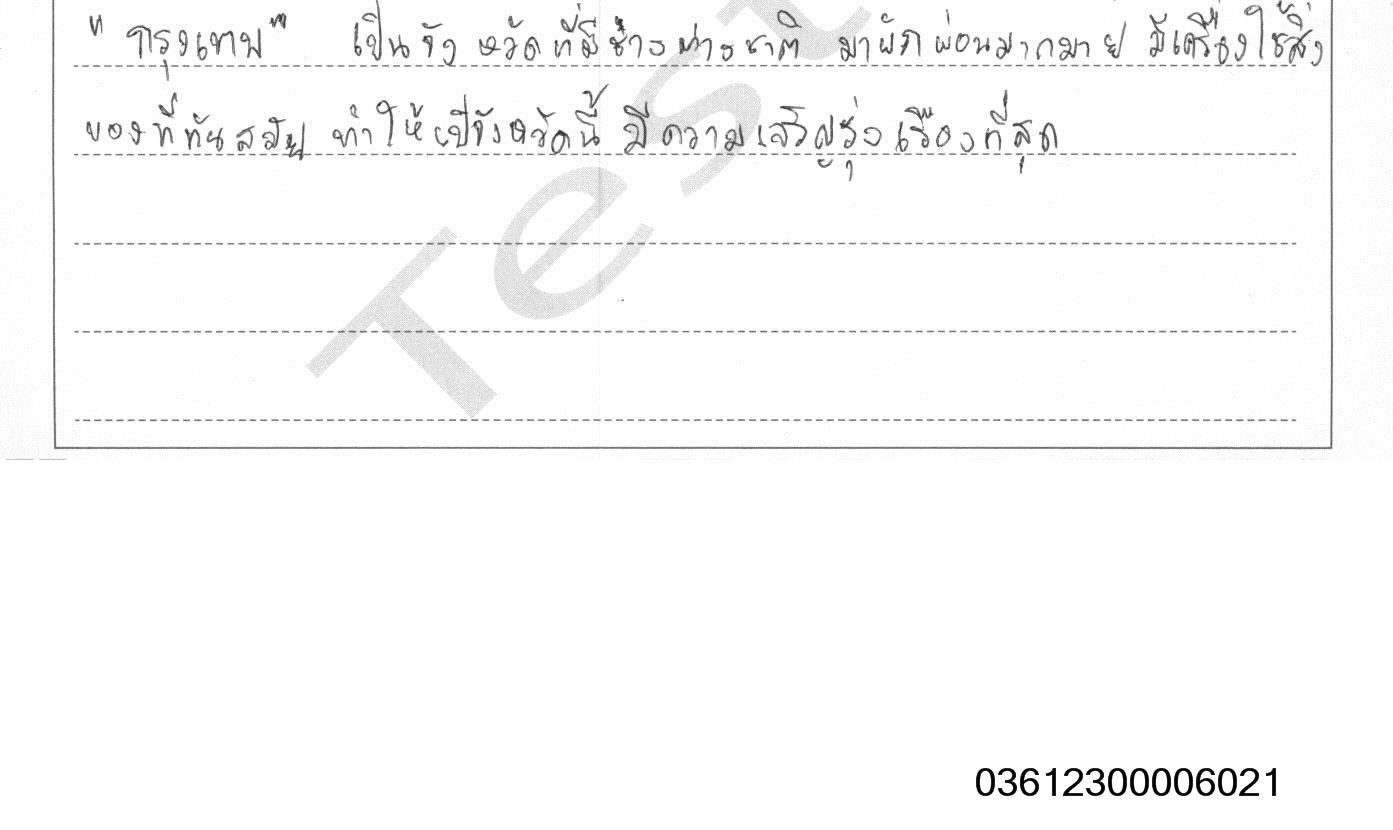 "กรุงเทพ" เป็นจังหวัดที่มีช่างต่างชาติ มาพักผ่อนมากมาย มีเครื่องใช้สิ่ง
ของที่ทันสมัย ทำให้เป็จังหวัดนี้ มีความเจริญรุ่งเรืองที่สุด
Test
03612300006021